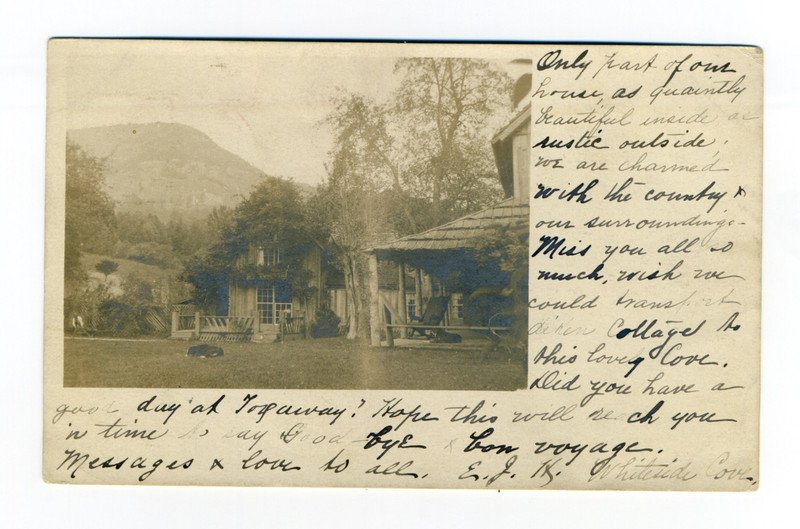 Only part of our
house, as quaintly
beautiful inside as
rustic outside.
we are charmed
with the country &
our surroundings-
Miss you all so
much, wish we
could transport
Cottage to
this lovely Cove.
Did you have a
good day at Toxaway? Hope this will reach you
in time to say Good-bye & bon voyage.
Messages & love to all. E. J. K. Whiteside Cove.